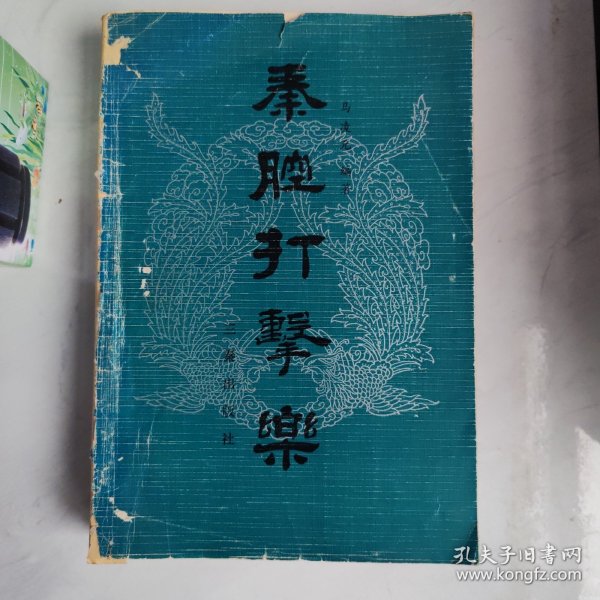 秦腔打擊樂
三秦出版社
孔夫子旧书网
www.kongfz.com